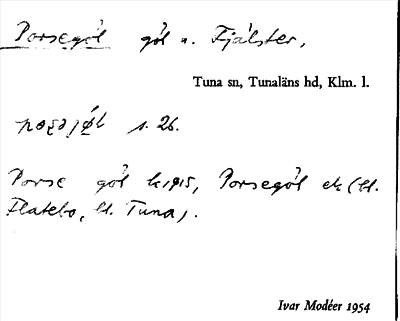 Porsegól gól n. Fjälster,
Tuna sn, Tunaläns hd, Klm. l.
s. 26.
Porse gól k 1915, Porsegól ek (bl.
Flatebo, bl. Tuna).
Ivar Modéer 1954